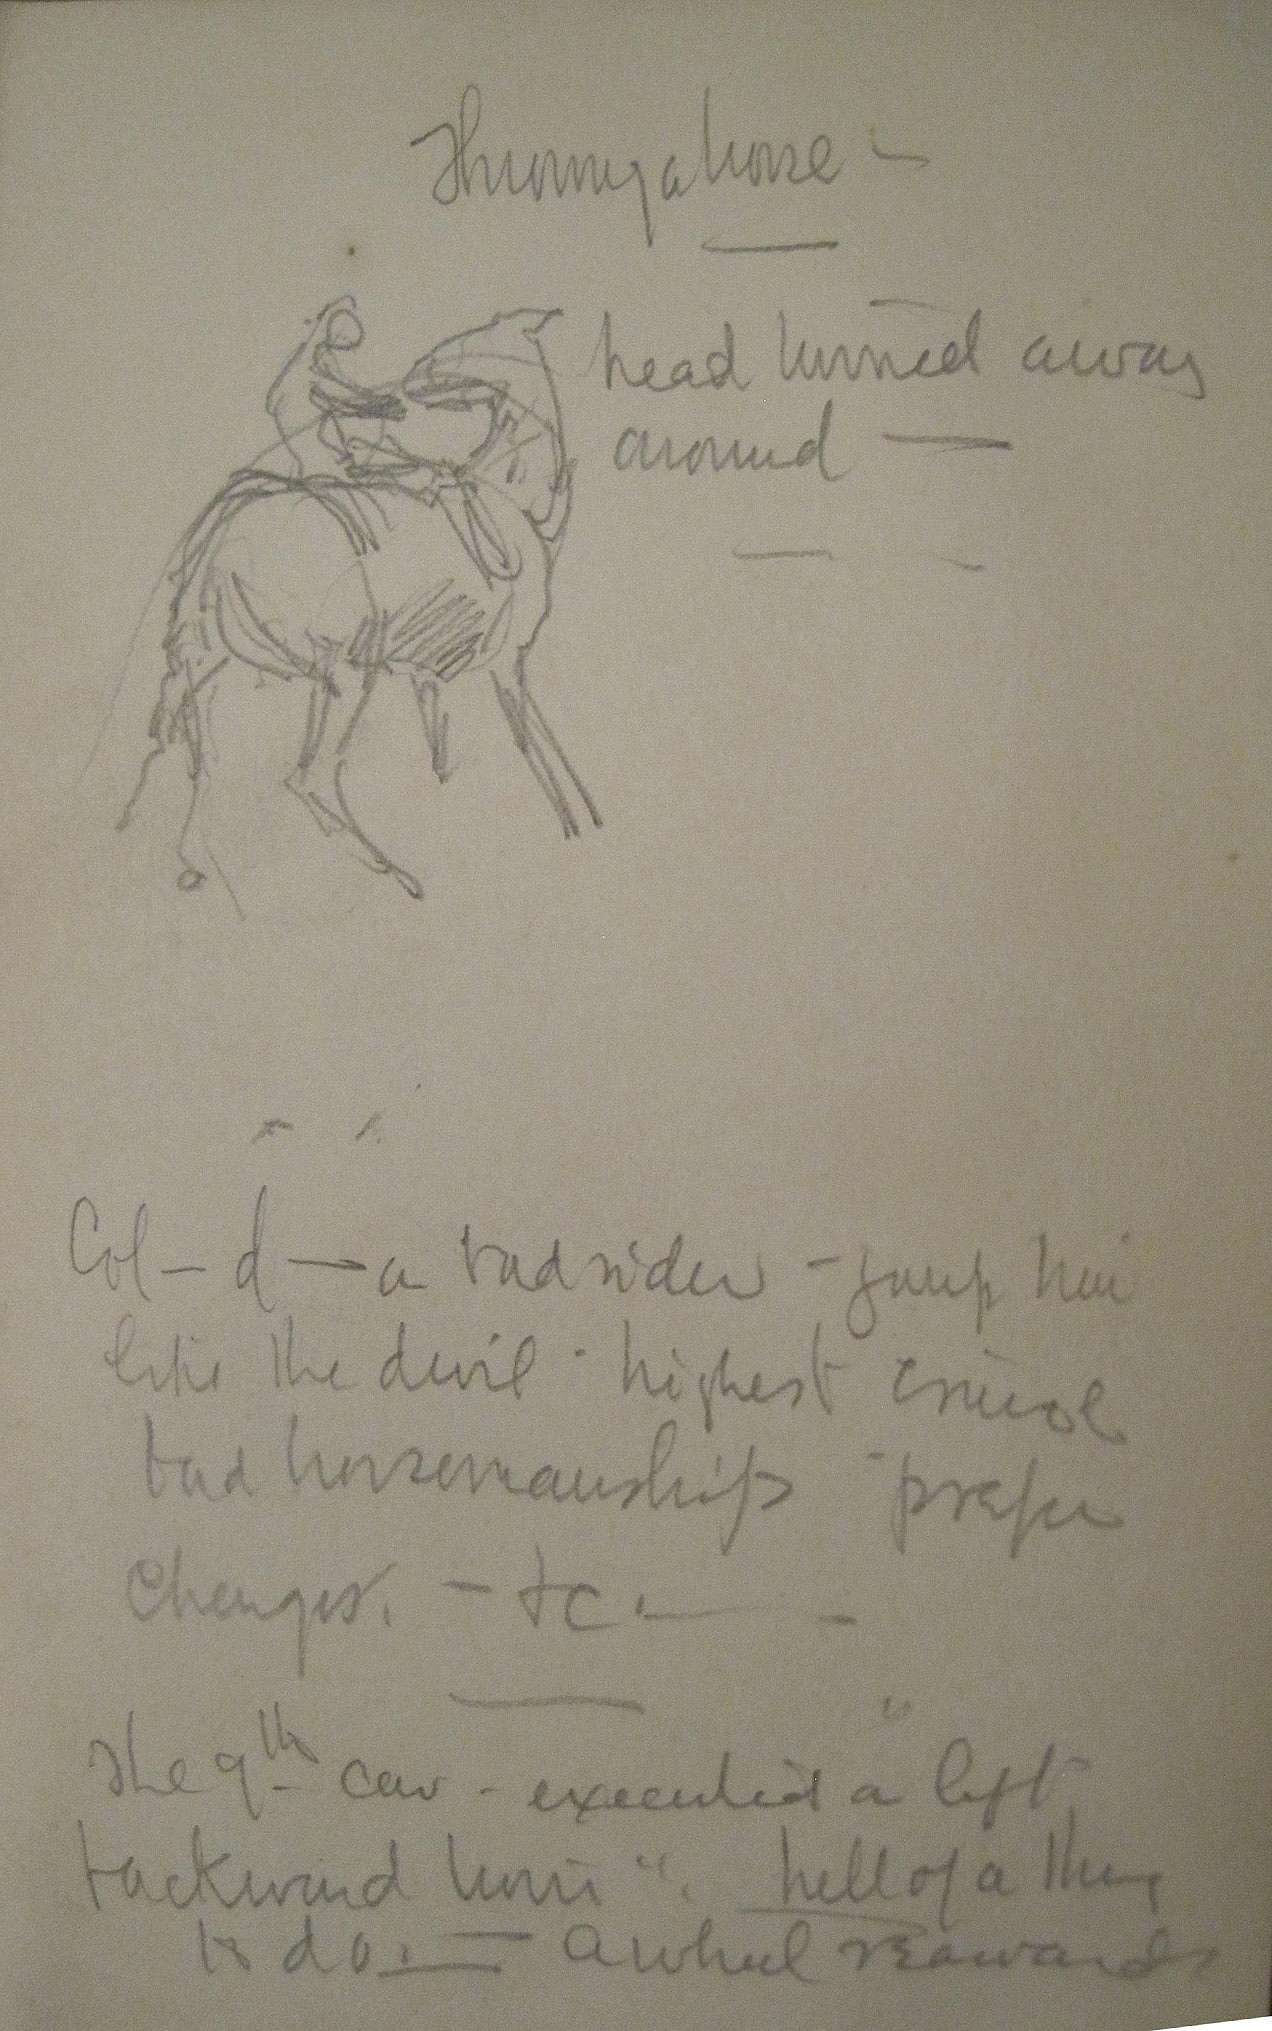 Throwing a horse -
head turned away
around —
Col - d — a bad rider - jump him
like the devil - highest
bad horsemanship - prefer
changes. - tc. —
The 9th cav - executed a "left
backward turn". hell of a thing
to do. — A wheel rearward